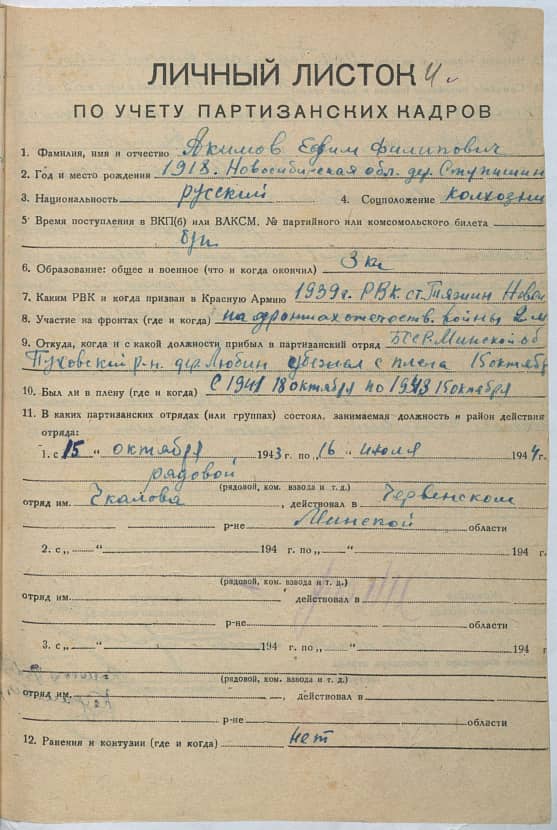 ЛИЧНЫЙ ЛИСТОК
ПО УЧЕТУ ПАРТИЗАНСКИХ КАДРОВ
1. Фамилия, имя и отчество Акимов Ефим Филипович
2. Год и место рождения 1918. Новосибирская обл. дер. Ступишин
3. Национальность русский 4. Соцположение колхозник
5. Время поступления в ВКП(б) или ВЛКСМ. № партийного или комсомольского билета
б/п
6. Образование: общее и военное (что и когда окончил) 3 кл
7. Каким РВК и когда призван в Красную Армию 1939 г. РВК. ст. Тяжин Новос
8. Участие на фронтах (где и когда) на фронтах отечеств. войны 2 м
9. Откуда, когда и с какой должности прибыл в партизанский отряд БССР. Минской об
Пуховский р-н. дер. Любин убежал с плена 15 октябр
10. Был ли в плену (где и когда) С 1941 18 октября по 1943 15 октября
11. В каких партизанских отрядах (или группах) состоял, занимаемая должность и район действия
отряда:
1. с 15 " октября 1943 г. по 16 " июля 1944 г.
рядовой
(рядовой, ком. взвода и т. д.)
отряд им. Чкалова, действовал в Червенском
р-не Минской области
2. с „ " 194 г. по „ " 194 г.
(рядовой, ком. взвода и т. д.)
отряд им. действовал в
р-не области
3. с „ " 194 г. по „ " 194 г.
(рядовой, ком. взвода и т. д.)
отряд им. , действовал в
р-не области
12. Ранения и контузии (где и когда) нет